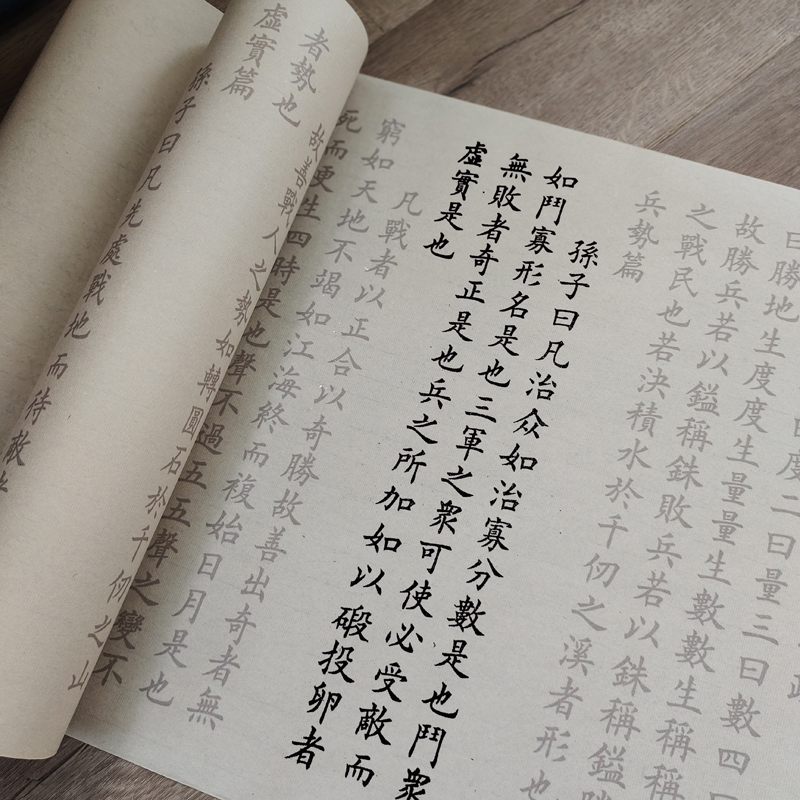 曰度二曰量三曰數四曰
曰勝地生度度生量量生數數生稱稱
故勝兵若以鎰稱銖敗兵若以銖稱鎰勝
之戰民也若決積水於千仞之溪者形也
兵勢篇
孫子曰凡治众如治寡分數是也鬥衆
如鬥寡形名是也三軍之衆可使必受敵而
無敗者奇正是也兵之所加如以碫投卵者
虛實是也
凡戰者以正合以奇勝故善出奇者無
窮如天地不竭如江海終而複始日月是也
死而更生四時是也聲不過五五聲之變不
故善戰人之勢如轉圓石於千仞之山
者勢也
虛實篇
孫子曰凡先處戰地而待敵者